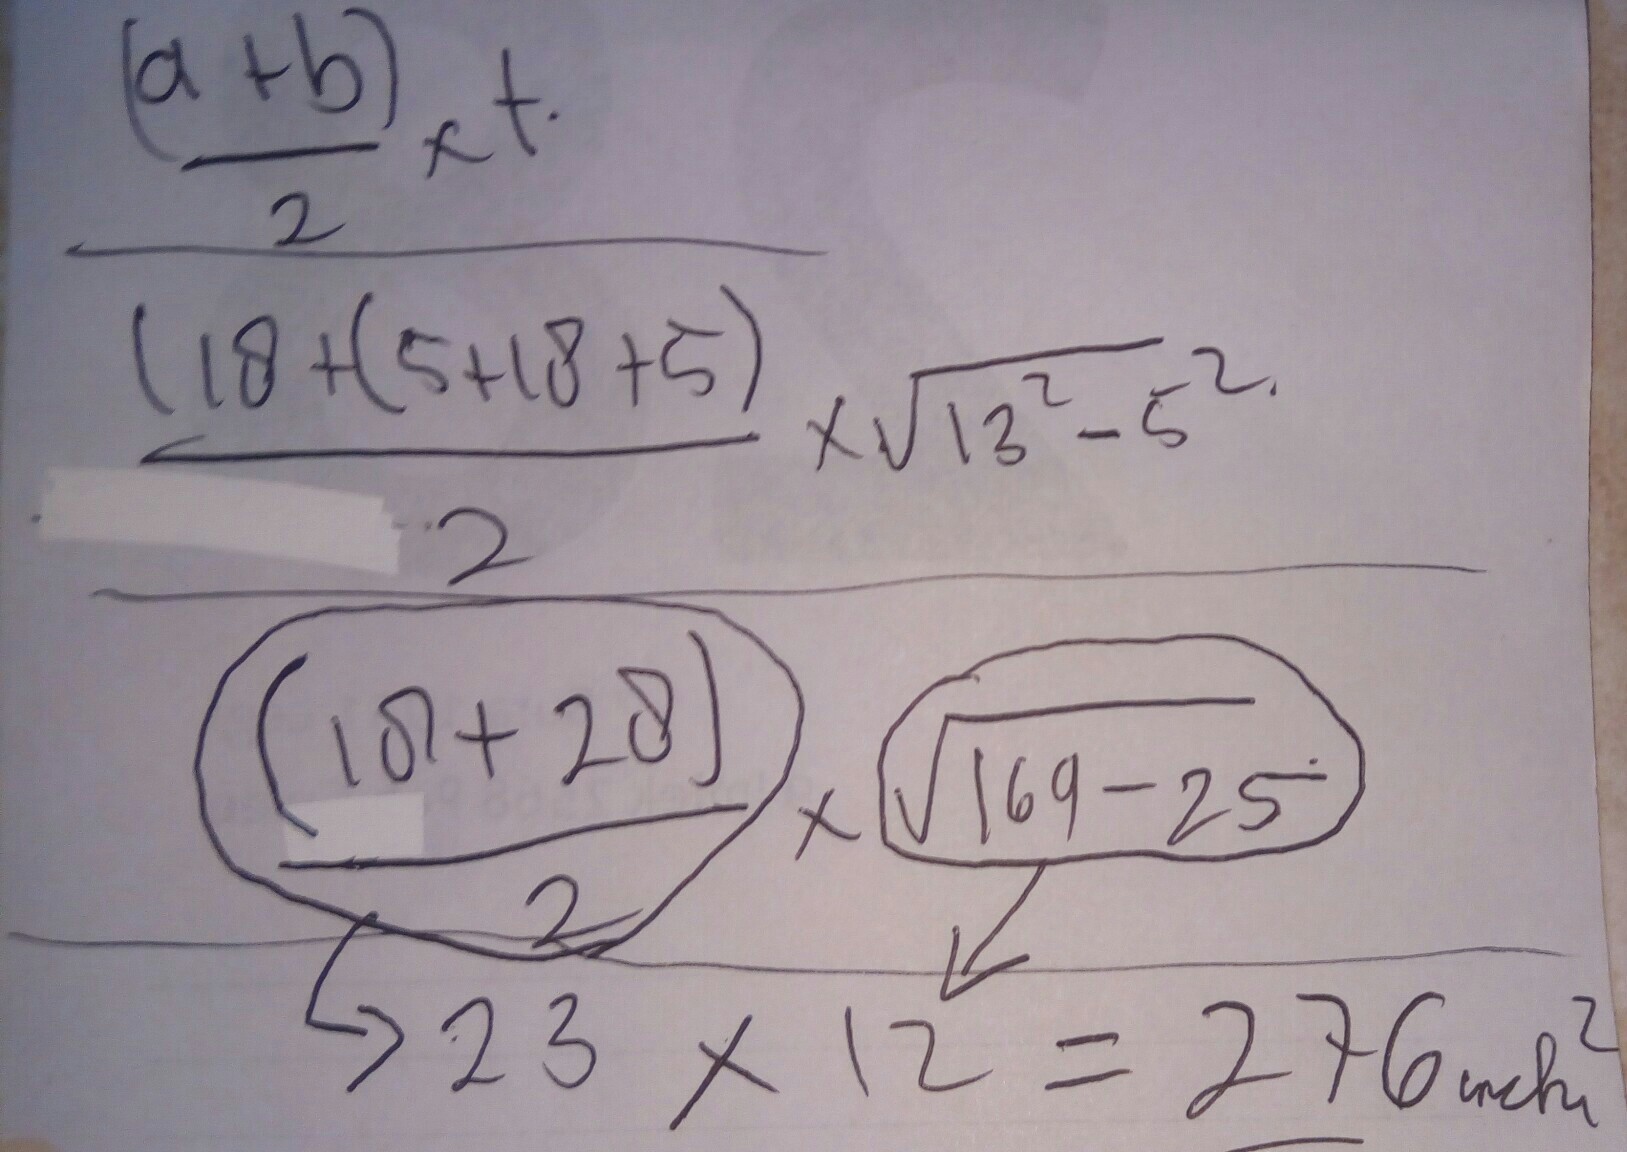 (a + b)
× t.
2
(18 + (5+18 +5)
× √13² - 5².
2
(18 + 28)
× √169 - 25
2
23 × 12 = 276 inchi²